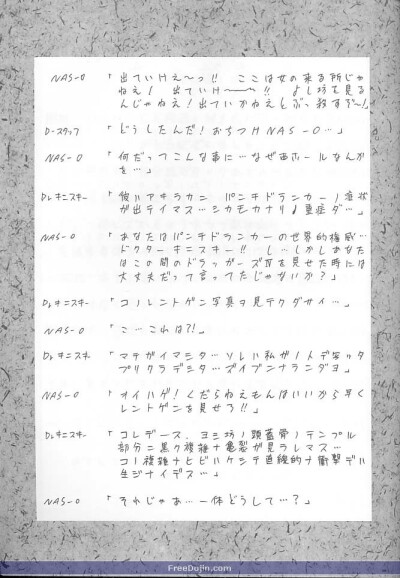 NAS-0 「出ていけぇ〜っ!! ここは女の来る所じゃ
ねえ! 出ていけ〜〜!! よし坊を見る
んじゃねえ!出ていかねえとぶっ殺すぞ〜!」
D-スタッフ 「どうしたんだ!おちつけNAS-0…」
NAS-0 「何だってこんな事に…なぜ西ホールなんか
を…」
Dr.キニスキー 「彼ハアキラカニ パンチドランカーノ症状
が出テイマス…シカモカナリノ重症ダ…」
NAS-0 「あなたはパンチドランカーの世界的権威…
ドクターキニスキー!! し…しかしあなた
はこの間のドラッガーズⅣを見せた時には
大丈夫だって言ってたじゃないか?」
Dr.キニスキー 「コノレントゲン写真ヲ見テクダサイ…」
NAS-0 「こ…これは?!」
Dr.キニスキー 「マチガイマシタ…ソレハ私がノトデ写ッタ
プリクラデシタ…ズイブンナランダヨ」
NAS-0 「オイハゲ!くだらねえもんはいいから早く
レントゲンを見せろ!!」
Dr.キニスキー 「コレデース.ヨシ坊ノ頭蓋骨ノテンプル
部分ニ黒ク複雑ナ亀裂が見ラレマス…
コノ複雑ナヒビハケシテ直線的ナ衝撃デハ
生ジナイデス…」
NAS-0 「それじゃあ…一体どうして…?」
FreeDojin.com